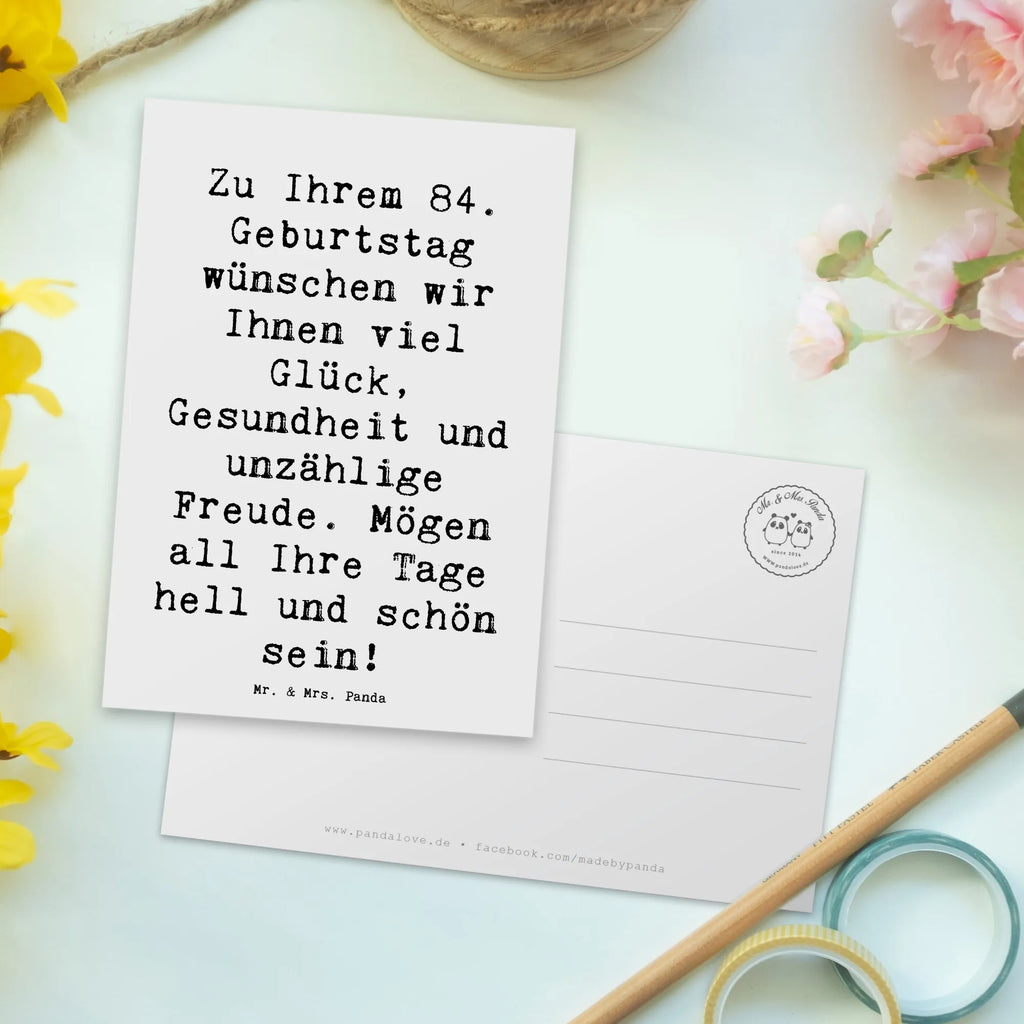 Zu Ihrem 84.
Geburtstag
wünschen wir
Ihnen viel
Glück,
Gesundheit und
unzählige
Freude. Mögen
all Ihre Tage
hell und schön
sein!
Mr. & Mrs. Panda
Mr. & Mrs. Panda
since 2014
www.pandalove.de
www.pandalove.de • facebook.com/madebypanda
PITT PASTEL
FABER-CASTELL